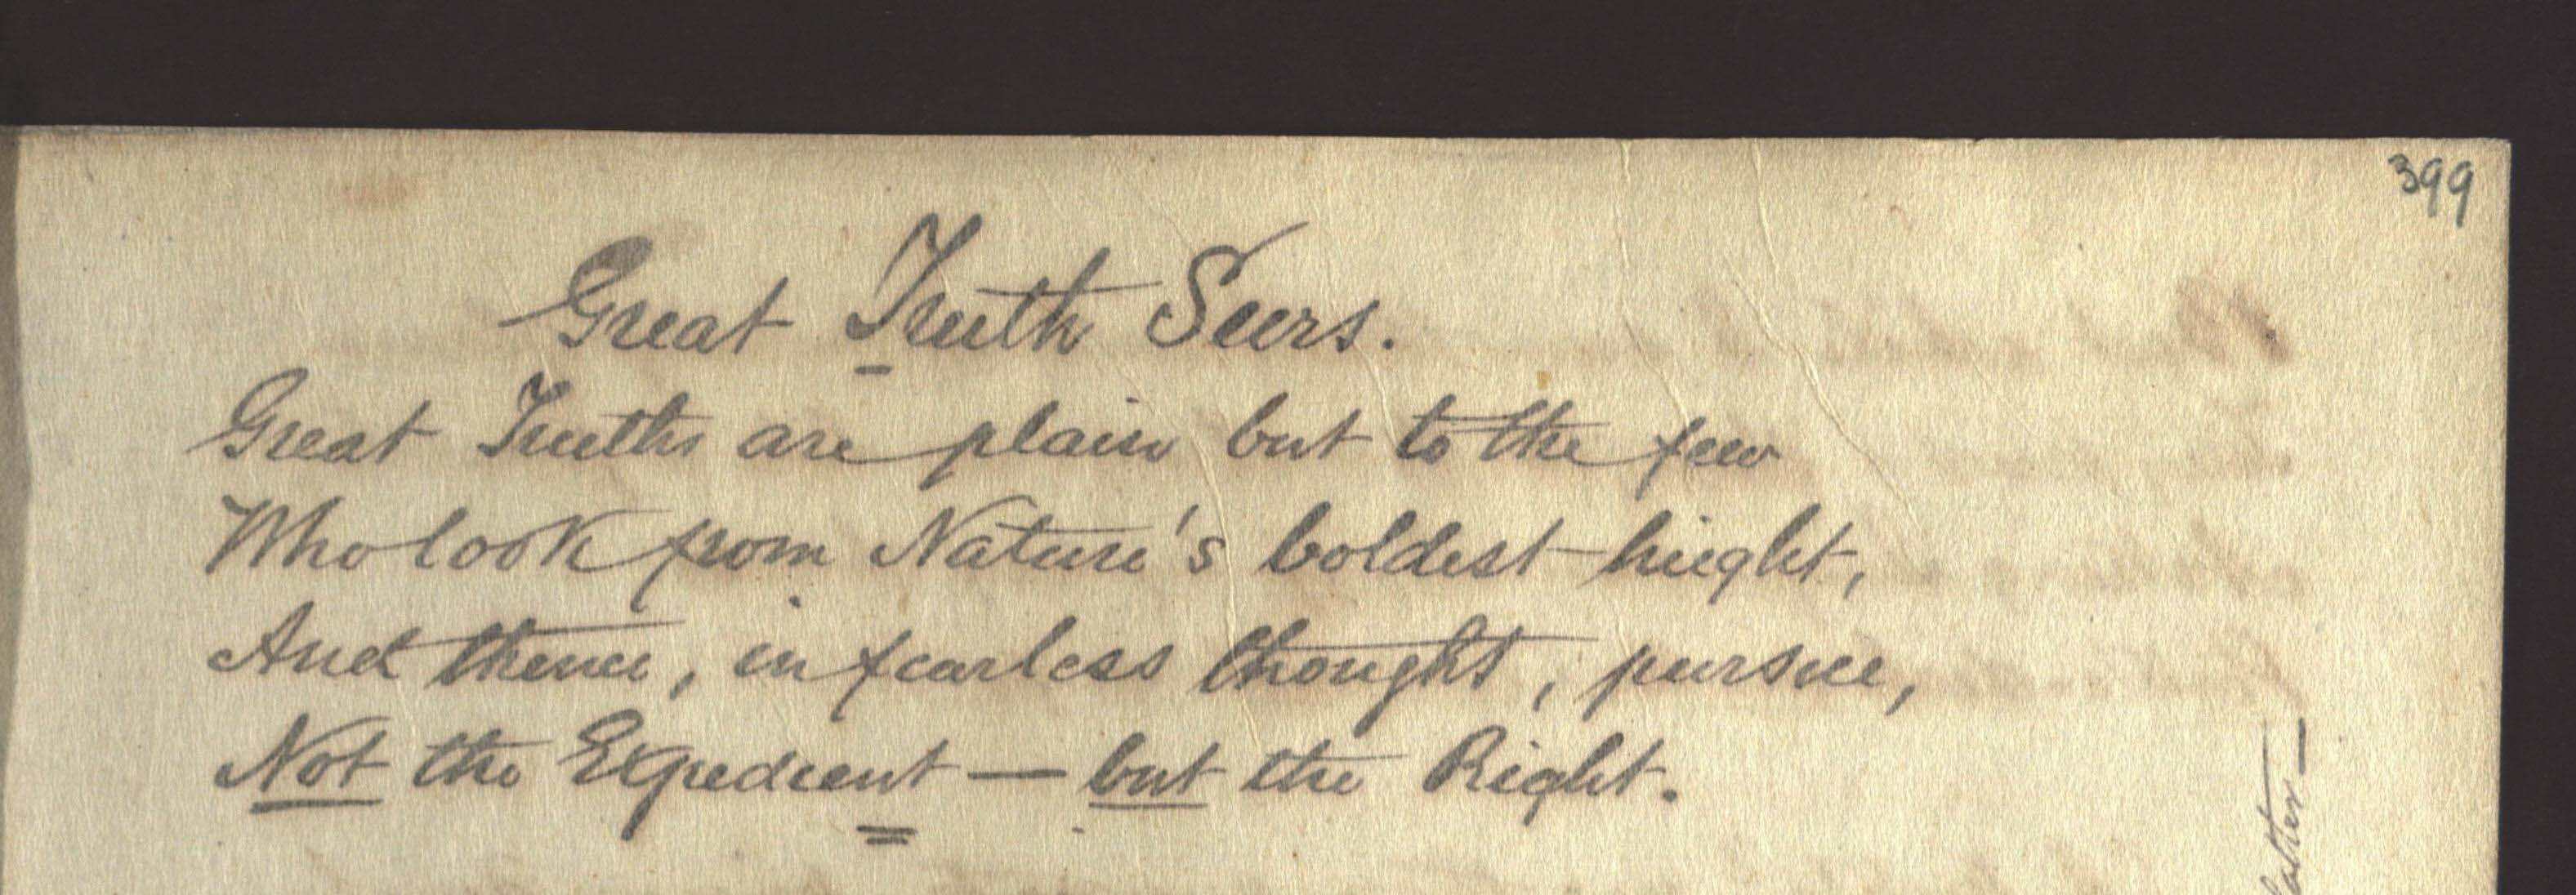 399
Great Truth Seers.
Great Truths are plain but to the few
Who look from Nature's boldest hieght,
And thence, in fearless thought, pursue,
Not the Expedient — but the Right.